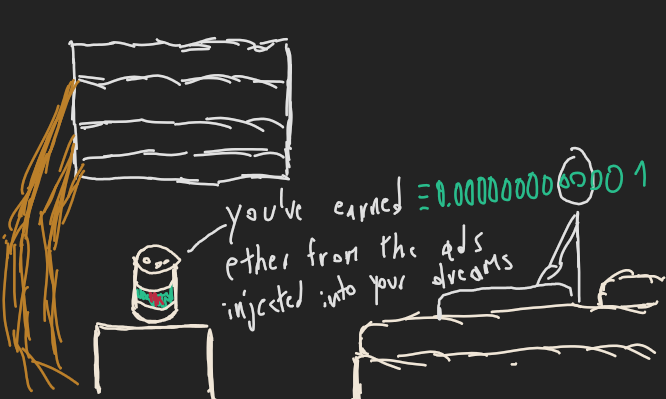 you've earned Ξ0.0000000000001
ether from the ads
injected into your dreams